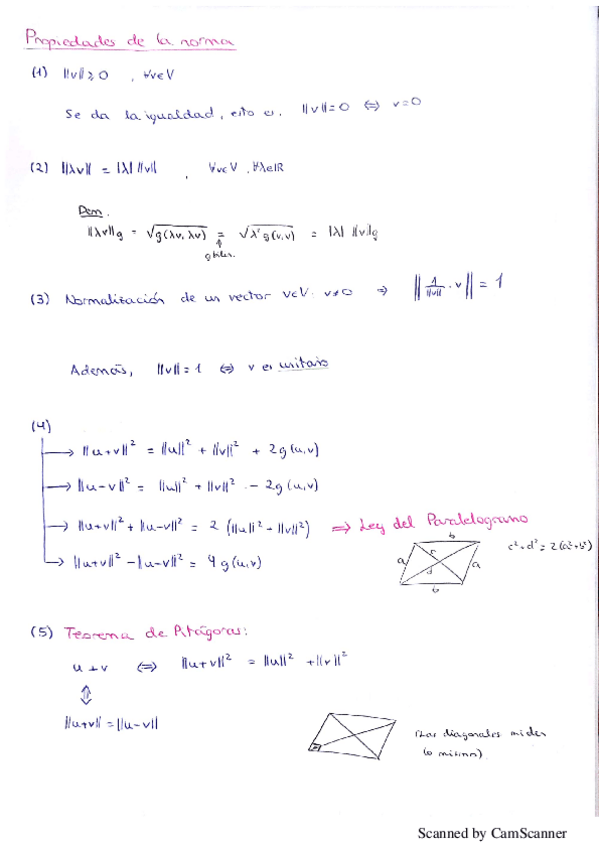 Propiedades de la norma
(1) ||v|| ≥ 0 , ∀v∈V
Se da la igualdad, esto es, ||v|| = 0 ⇔ v=0
(2) ||λv|| = |λ| ||v|| , ∀v∈V, ∀λ∈ℝ
Dem.
||λv||g = √g(λv, λv) = √λ² g(v,v) = |λ| ||v||g
↑
g bilin.
(3) Normalización de un vector v∈V: v≠0 ⇒ || 1/||v|| · v || = 1
Además, ||v|| = 1 ⇔ v es unitario
(4)
→ ||u+v||² = ||u||² + ||v||² + 2g(u,v)
→ ||u-v||² = ||u||² + ||v||² - 2g(u,v)
→ ||u+v||² + ||u-v||² = 2 (||u||² + ||v||²) ⇒ Ley del Paralelogramo
b
a c a
d
b
c²+d² = 2(a²+b²)
→ ||u+v||² - ||u-v||² = 4g(u,v)
(5) Teorema de Pitágoras:
u ⊥ v ⇔ ||u+v||² = ||u||² + ||v||²
⇕
||u+v|| = ||u-v||
Las diagonales miden
lo mismo)
Scanned by CamScanner